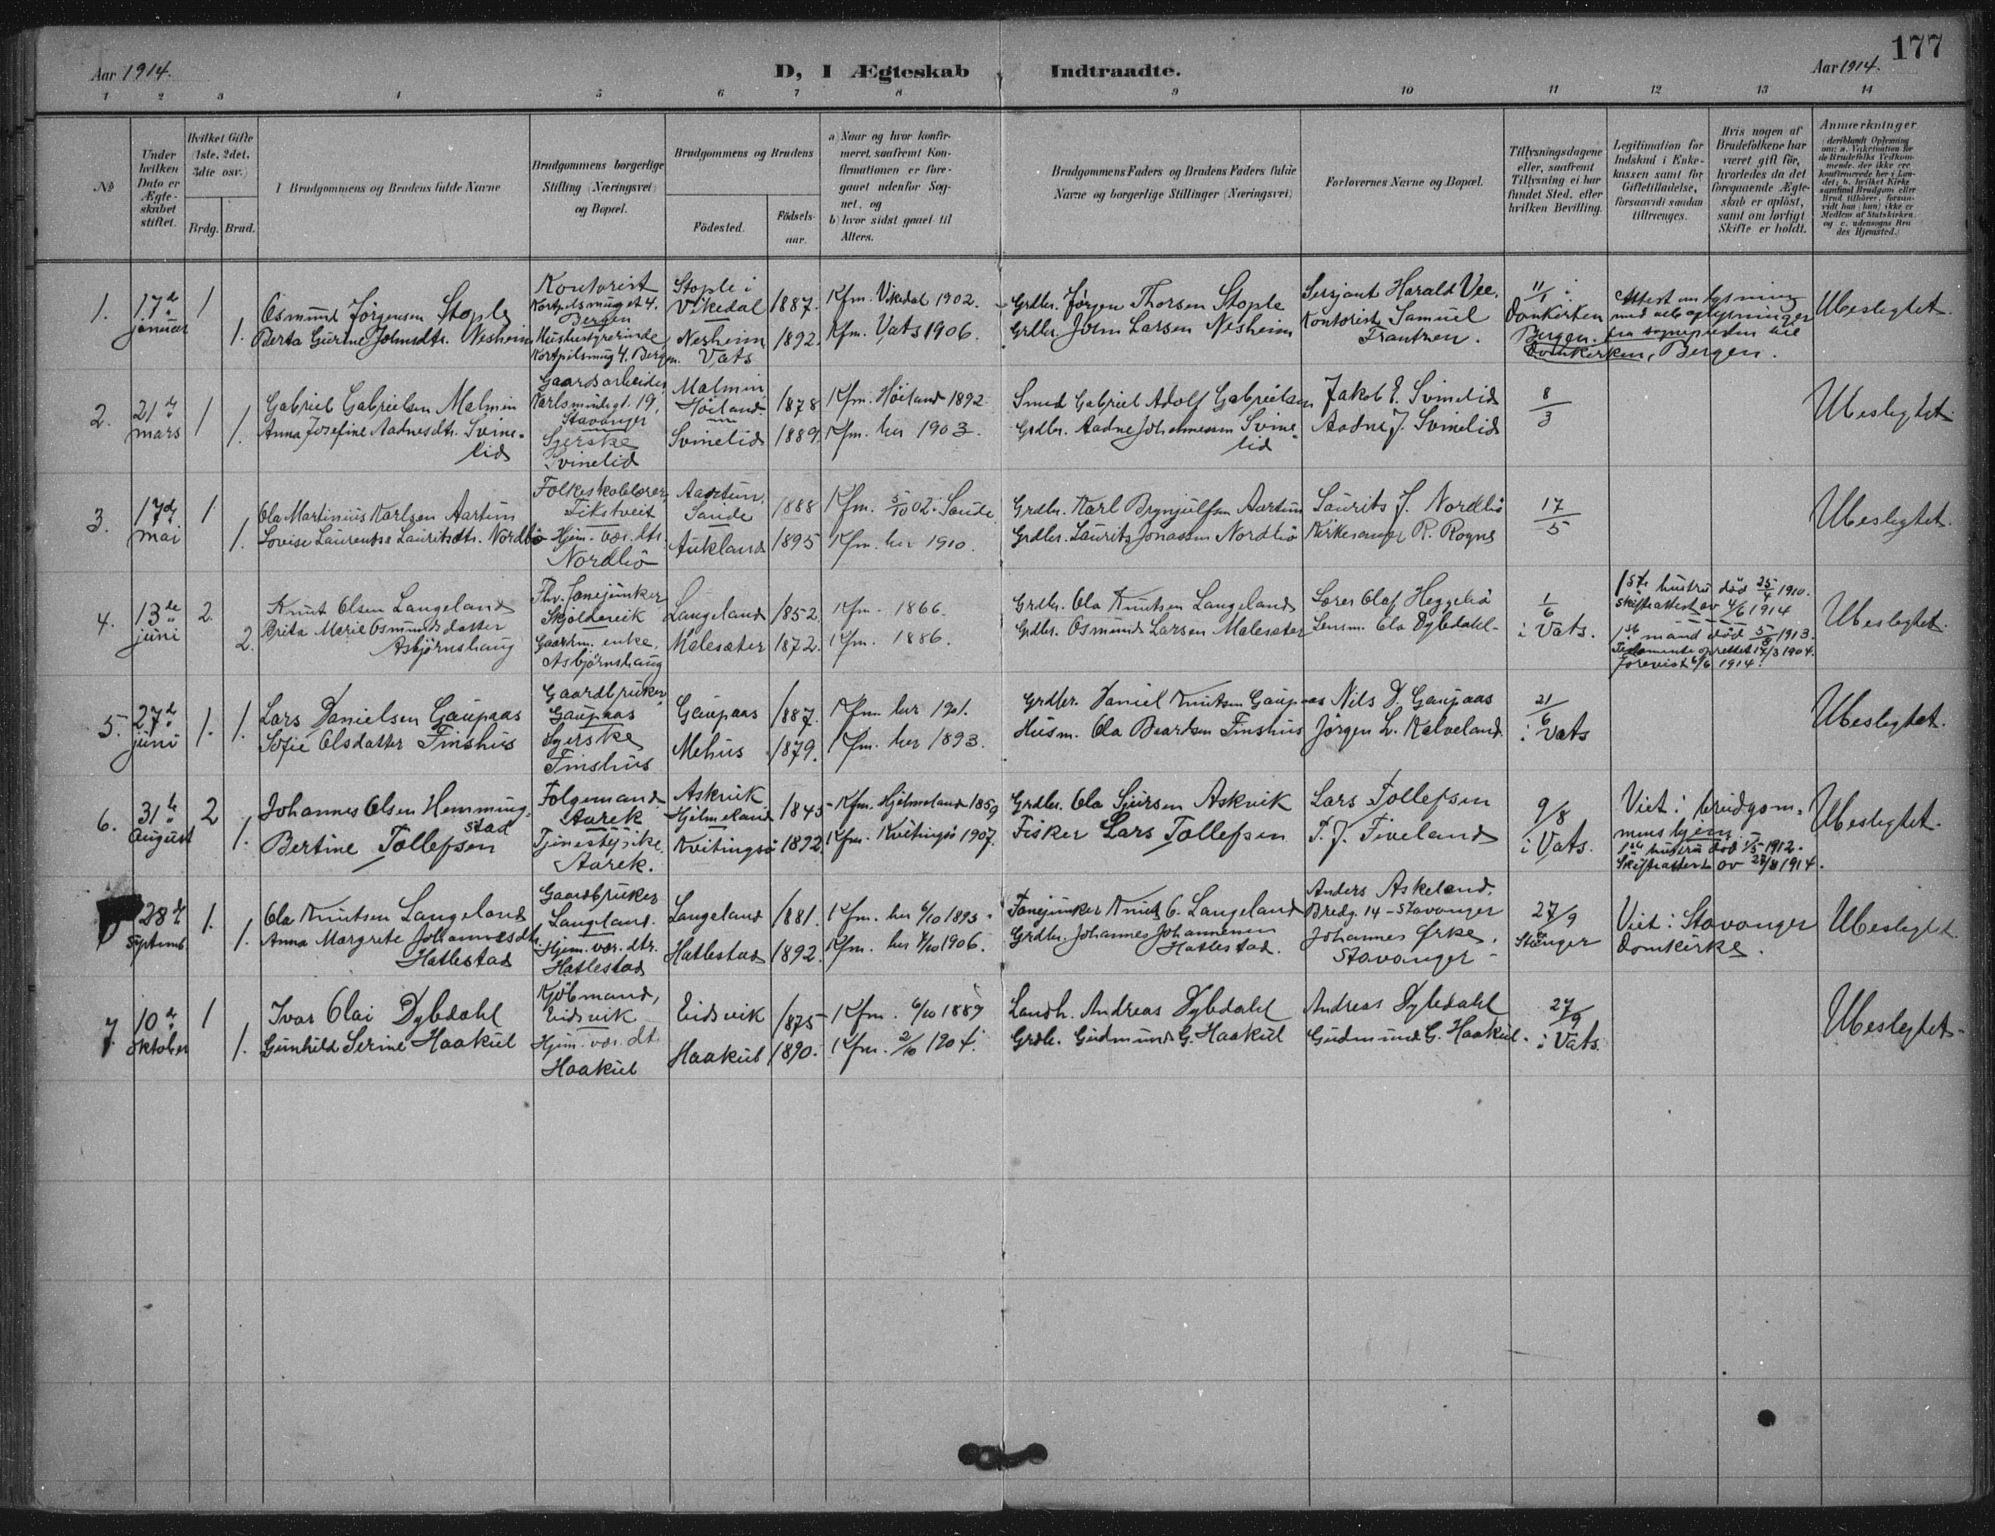 177
Aar 1914.
D, I Ægteskab Indtraadte.
Aar 1914.
1 2 3 4 5 6 7 8 9 10 11 12 13 14
No
Under hvilken Dato er Ægteskabet stiftet.
Hvilket Gifte (1ste, 2det, 3die osv.)
Brdg. Brud.
I Brudgommens og Brudens fulde Navne
Brudgommens borgerlige Stilling (Næringsvei) og Bopæl.
Brudgommens og Brudens
Födested.
Födsels-aar.
a) Naar og hvor konfirmeret, saafremt Konfirmationen er foregaaet udenfor Sognet, og
b) hvor sidst gaaet til Alters.
Brudgommens Faders og Brudens Faders fulde Navne og borgerlige Stillinger (Næringsvei)
Forlovernes Navne og Bopæl.
Tillysningsdagene eller, saafremt Tillysning ei har fundet Sted, efter hvilken Bevilling.
Legitimation for Indskud i Enkekassen samt for Giftetilladelse, forsaavidt saadan tiltrænges.
Hvis nogen af Brudefolkene har været gift för, hvorledes da det foregaaende Ægteskab er oplöst, samt om lovligt Skifte er holdt.
Anmærkninger
1. 17de januar 1 1.
Osmund Jørgensen Stople
Berta Gurine Johnsdtr. Nesheim
Kontorist
Kortpilsmuget 4.
Bergen
Husbestyrerinde
Kortpilsmug 4. Bergen.
Stople i Vikedal 1887.
Nesheim Vats 1892.
Kfm. Vikedal 1902.
Kfm. Vats 1906.
Grdbr. Jørgen Thorsen Stople
Grdbr. John Larsen Nesheim
Sersjant Harald Vee.
Kontorist Samuel Frantzen.
11/1 i Domkirken Bergen.
Attest om lysning med alle oplysninger fra sognepresten til Domkirken, Bergen.
Ubeslegtet.
2. 21de mars 1 1.
Gabriel Gabrielsen Malmin
Anna Josefine Aadnesdtr. Svinelid
Gaardsarbeider,
Karlsminegt. 19,
Stavanger
Syerske
Svinelid
Malmin, Høiland 1878
Svinelid 1889.
Kfm. Høiland 1892
Kfm. her 1903.
Smed Gabriel Adolf Gabrielsen
Grdbr. Aadne Johannessen Svinelid
Jakob E. Svinelid
Aadne J. Svinelid
8/3
Ubeslegtet.
3. 17de mai 1 1.
Ola Martinius Karlsen Aartun
Lovise Laurentse Lauritsdtr. Nordbø
Folkeskolelærer,
Fikstveit
Hjem. vær. dtr.
Nordbø
Aartun, Saude 1888
Aukland 1895
Kfm. 5/10 02. Saude
Kfm. her 1910.
Grdbr. Karl Brynjulfsen Aartun
Grdbr. Laurits Jonassen Nordbø
Laurits J. Nordbø
Kirkesanger R. Rogne
17/5
Ubeslegtet.
4. 13de juni 2. 2.
Knut Olsen Langeland
Brita Marie Osmundsdatter Asbjørnshaug
Fhv. Fanejunker,
Skjoldevik
Gaardm. enke,
Asbjørnshaug
Langeland 1852.
Malesæter 1872.
Kfm. 1866.
Kfm. 1886.
Grdbr. Ola Knutsen Langeland
Grdbr. Osmund Larsen Malesæter
Lærer Olaf Heggebø
Lensm. Ola Dybdahl
1/6 i Vats.
1ste hustru død 25/4 1910.
Skifteattest av 4/6 1914
1ste mand død 5/8 1913.
Testamente oprettet 17/3 1904.
forevist 6/6 1914.
Ubeslegtet.
5. 27de juni 1. 1.
Lars Danielsen Gaupaas
Sofie Olsdatter Finshus
Gaardbruker,
Gaupaas
Syerske,
Finshus
Gaupaas 1887.
Mehus 1879.
Kfm. her 1901.
Kfm. her 1893.
Grdbr. Daniel Knutsen Gaupaas
Husm. Ola Baardsen Finshus
Nils D. Gaupaas
Jørgen L. Kalveland.
21/6 i Vats
Ubeslegtet.
6. 31te August 2 1.
Johannes Olsen Hemmingstad
Bertine Tollefsen
Folgemand
Aarek
Tjenestepike,
Aarek.
Askvik, Hjelmeland 1845
Kvitingsø 1892.
Kfm. Hjelmeland 1859
Kfm. Kvitingsø 1907.
Grdbr. Ola Sjursen Askvik
Fisker Lars Tollefsen
Lars Tollefsen
T. J. Fiveland
9/8 i Vats.
Viet i brudgommens hjem
1ste hustru død 1/5 1912.
Skifteattest av 27/8 1914.
Ubeslegtet.
28de Septemb 1. 1.
Ola Knutsen Langeland
Anna Margrete Johannesdtr. Hatlestad
Gaardbruker
Langeland.
Hjem. vær. dtr.
Hatlestad
Langeland 1881.
Hatlestad 1892.
Kfm. her 6/10 1895.
Kfm. her 7/10 1906.
Fanejunker Knut O. Langeland
Grdbr. Johannes Johannessen Hatlestad.
Anders Askeland.
Bredg. 14 - Stavanger
Johannes Ørke,
Stavanger
27/9 Stavanger
Viet i Stavanger Domkirke.
Ubeslegtet
7. 10de oktober 1 1.
Ivar Olai Dybdahl
Gunhild Serine Haakul
Kjøbmand,
Eidsvik
Hjem. vær. dt.
Haakul
Eidsvik 1875
Haakul 1890.
Kfm. 6/10 1889
Kfm. 2/10 1904.
Landh. Andreas Dybdahl
Grdb. Gudmund G. Haakul
Andreas Dybdahl
Gudmund G. Haakul.
27/9 i Vats.
Ubeslegtet.